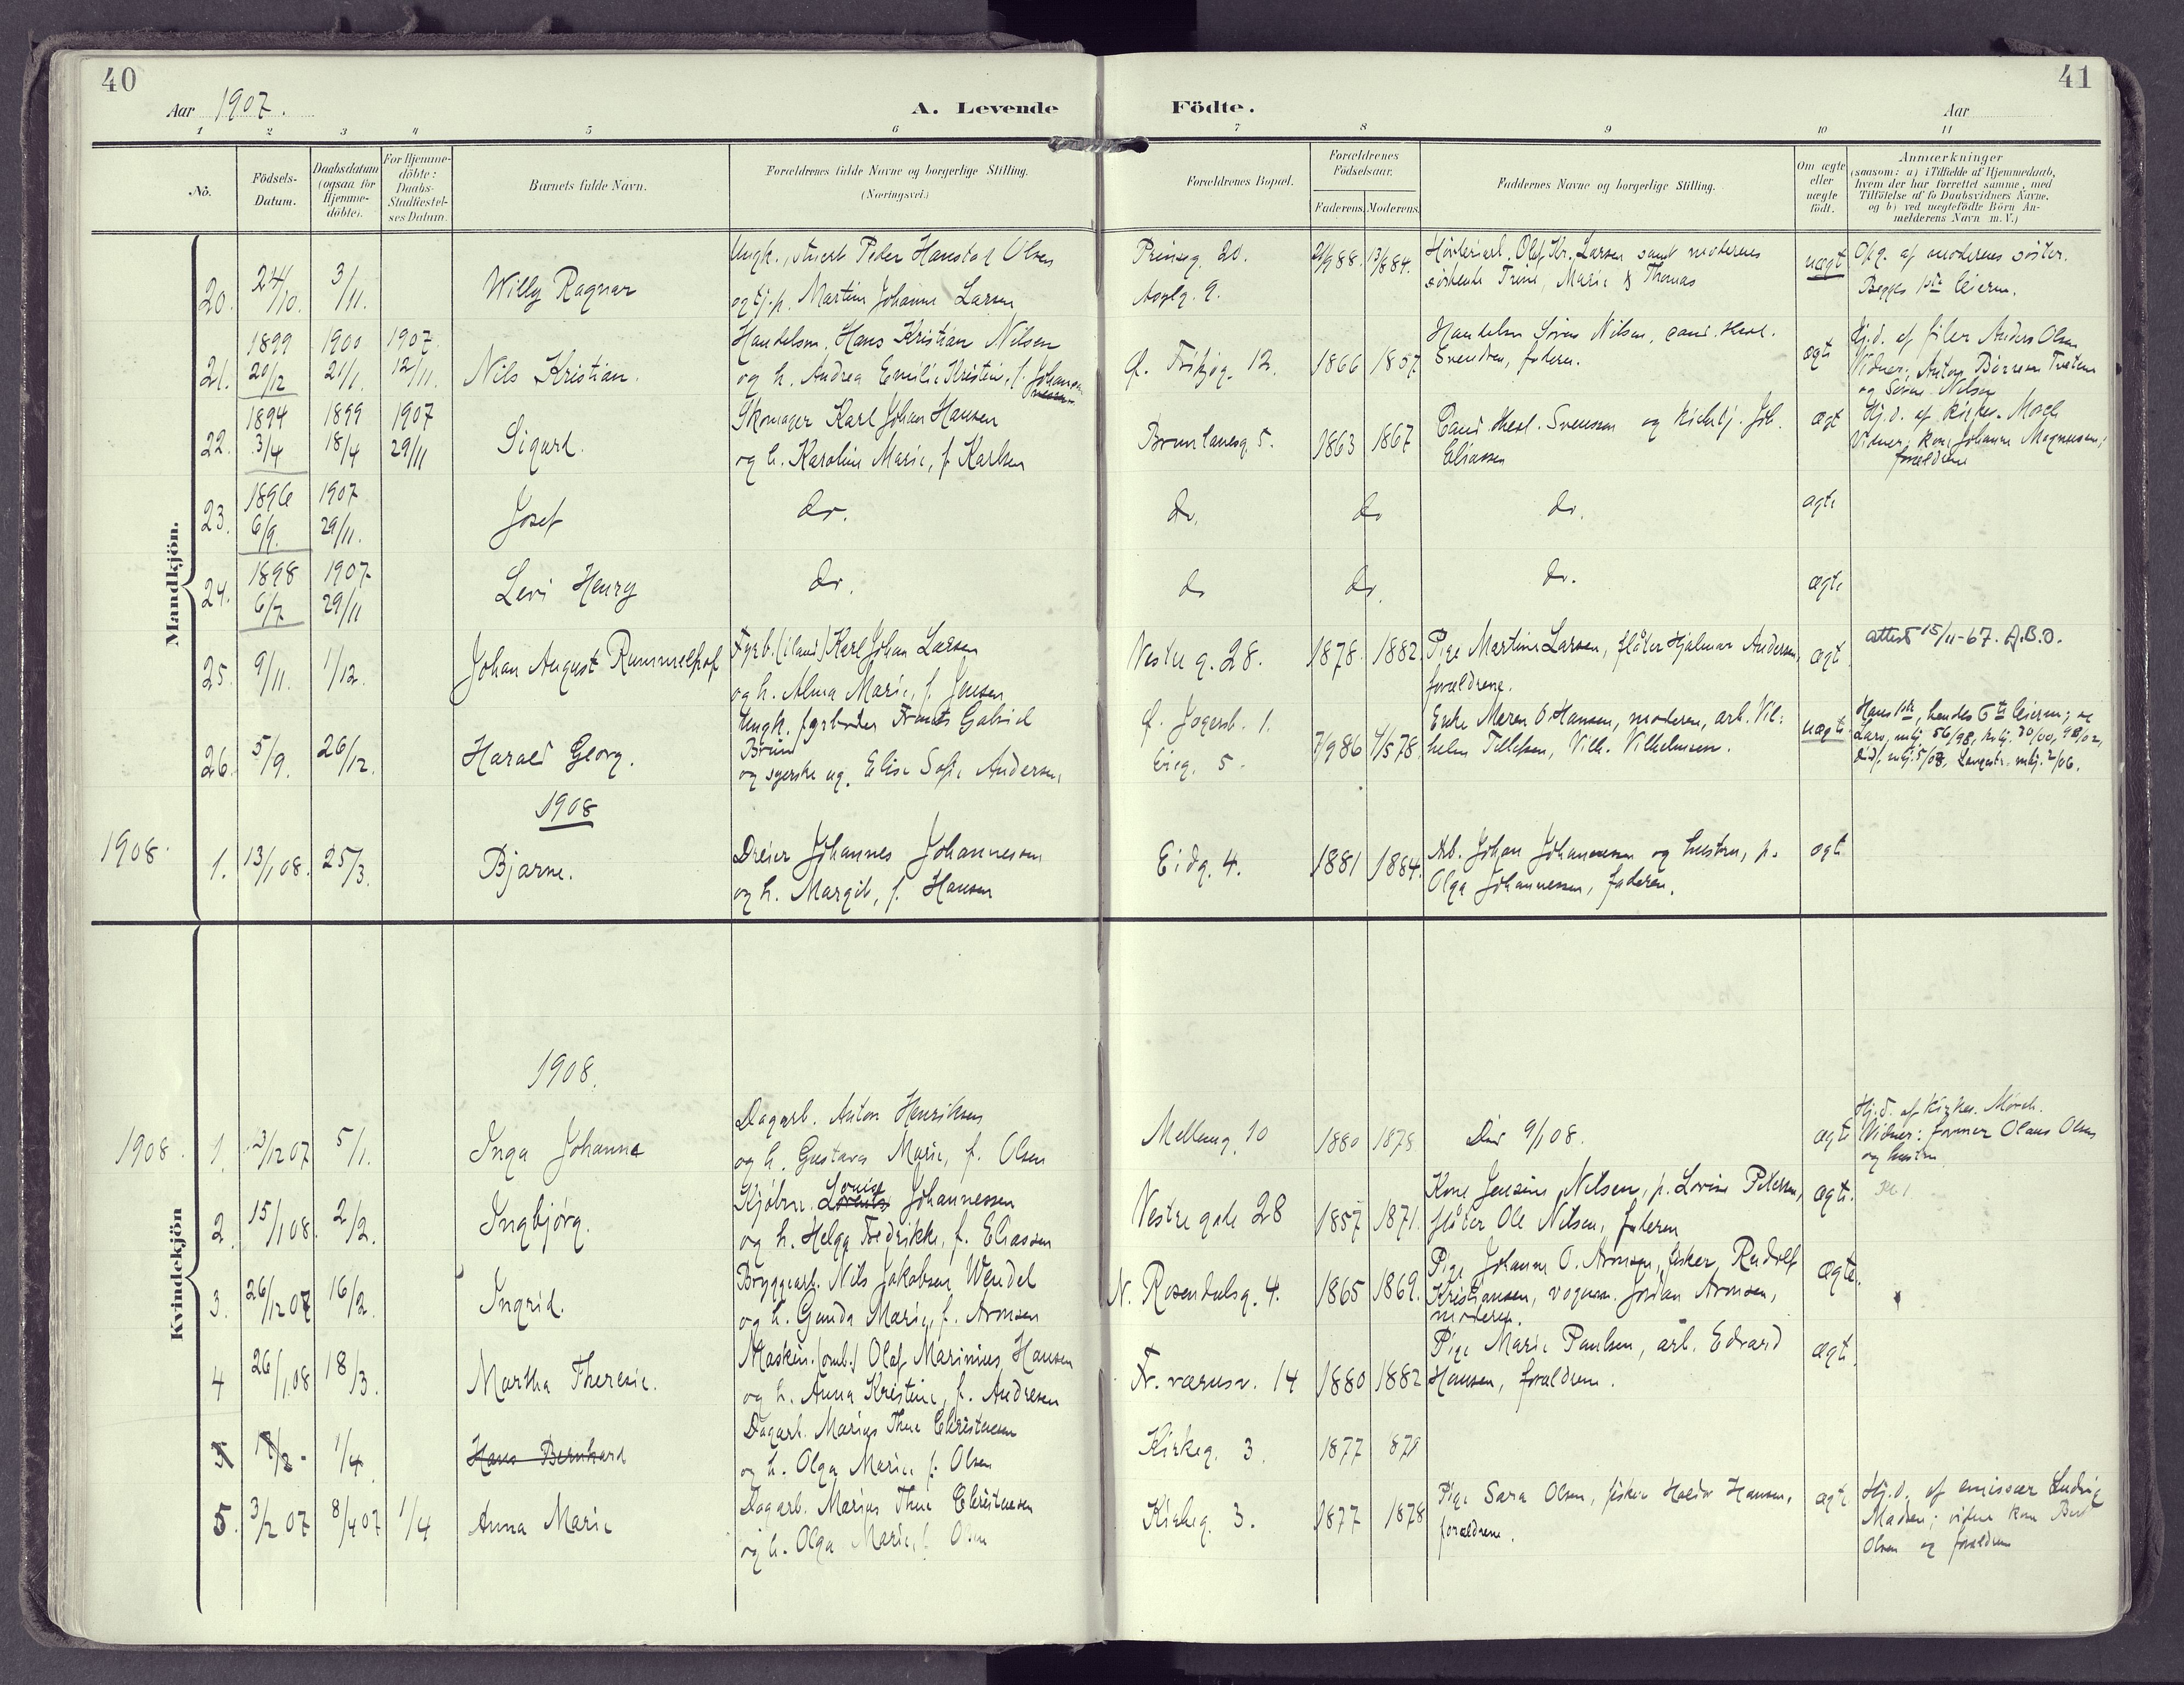 40
41
Aar 1907.
A. Levende Födte.
Aar
1 2 3 4 5 6 7 8 9 10 11
No.
Födsels-Datum.
Daabsdatum (ogsaa for Hjemme-döbte).
For Hjemme-döbte: Daabs-Stadfæstel-ses Datum.
Barnets fulde Navn.
Forældrenes fulde Navne og borgerlige Stilling. (Næringsvei.)
Forældrenes Bopæl.
Forældrenes Födselsaar.
Faderens. Moderens.
Faddernes Navne og borgerlige Stilling.
Om ægte eller uægte födt.
Anmærkninger
(saasom: a) i Tilfælde af Hjemmedaab, hvem der har forrettet samme, med Tilföielse af to Daabsvidners Navne, og b) ved uægtefödte Börn An-melderens Navn m. V.)
Mandkjön.
20. 24/10. 3/11. Willy Ragnar
Ungk., stuert Peder Hanstad Olsen
og tj.p. Martine Johanne Larsen
Prinsg. 20.
Asylg. 9.
21/9 88. 13/8 84.
Olaf Kr. Larsen samt moderens
söskende Trine, Marie & Thomas
uægt
Opg. af moderens söster.
Begges 1ste leierm.
21. 1899 20/12 1900 21/1. 1907. 12/11. Nils Kristian.
Handelsm. Hans Kristian Nilsen
og h. Andrea Emilie Kristine, f. Johansen
Q. Fritzjøg. 12. 1866 1857
Handelsm Sören Nilsen, cand. theol.
Svendsen, faderen.
ægte
Hj.d. af filer Anders Olsen
Vidner: Anton Börresen Tveten
og Sören Nilsen
22. 1894 3/4 1899 18/4 1907 29/11 Sigurd.
Skomager Karl Johan Hansen
og h. Karoline Marie, f. Karlsen
Brunlanesg. 5. 1863 1867
Cand. theol. Svensson og kirketj. Joh.
Eliassen
ægt
Hj.d. af kirkes. Mörch
Vidner: kone Johanne Magnusen,
forældrene
23. 1896 6/9. 1907 29/11. Josef do. do. do do. ægte
24. 1898 6/7 1907 29/11 Levi Henry do. do do. do. ægte
25. 9/11. 1/12. Johan August Rummelhof
Fyrb. (iland) Karl Johan Larsen
og h. Alma Marie, f. Jensen
Vestre g. 28. 1878. 1882
Pige Martine Larsen, flåter Hjalmar Andersen,
forældrene.
ægt
attest 15/11-67. A.B.O.
26. 5/9. 26/12. Harald Georg.
Ungk. fyrböder Frants Gabriel
Bruun
og syerske ug. Elise Sofie Andersen,
Q. Jegersb. 1.
Eieg. 5.
7/9 86 4/5 78.
Enke Meren O. Hansen, moderen, arb. Vil-
helm Tellefsen, Vilh. Vilhelmsen.
uægte
Hans 1ste, hendes 6te leierm; se
Larv. mkj. 56/98, kvkj. 20/00, 98/02,
did. mkj. 5/03, Langestr. mkj. 2/06.
1908
1908. 1. 13/1 08. 25/3. Bjarne.
Dreier Johannes Johannesen
og h. Margit, f. Hansen
Eidg. 4. 1881 1884.
Arb. Johan Johannesen og hustru, p.
Olga Johannessen, faderen.
ægte
Kvindekjön
1908.
1908. 1. /12 07 5/1. Inga Johanne
Dagarb. Anton Henriksen
og h. Gustava Marie, f. Olsen
Mellemg. 10 1880 1878
Död 9/1 08.
ægte
Hj.d. af kirkes. Mörch.
Vidner: former Olaus Olsen
og hustru
2. 15/1 08. 2/2. Ingbjørg.
Kjøbm. Louise Johannessen
og h. Helga Fredrikke, f. Eliassen
Vestre gade 28 1857 1871.
Kone Jensine Nilsen, p. Lovise Petersen,
flåter Ole Nilsen, faderen
ægte.
3. 26/12 07 16/2. Ingrid.
Bryggearb. Nils Jakobsen Wendel
og h. Gunda Marie, f. Arnesen
N. Rosendalsg. 4. 1865 1869.
Pige Johanne O. Arnesen, fisker Rudolf
Kristiansen, vognm. Johan Arnesen,
moderen.
ægte.
4 26/1.08 18/3. Martha Therese.
Maskin.(omb.) Olaf Marinius Hansen
og h. Anna Kristine, f. Andresen
Fr. værnsv. 14 1880 1882
Pige Marie Paulsen, arb. Edvard
Hansen, forældrene.
ægte.
1/4 Hans Bernhard
Dagarb. Marius Thue Christensen
og h. Olga Marie f. Olsen
Kirkeg. 3. 1877 1879
5. 3/2 07 8/4 07 1/4 Anna Marie
Dagarb. Marius Thue Christensen
og h. Olga Marie, f. Olsen
Kirkeg. 3. 1877 1878
Pige Sara Olsen, fisker Halvor Hansen,
forældrene.
ægte
Hj.d. af emissær Ludvig
Madsen; vidne kone
Olsen og forældrene